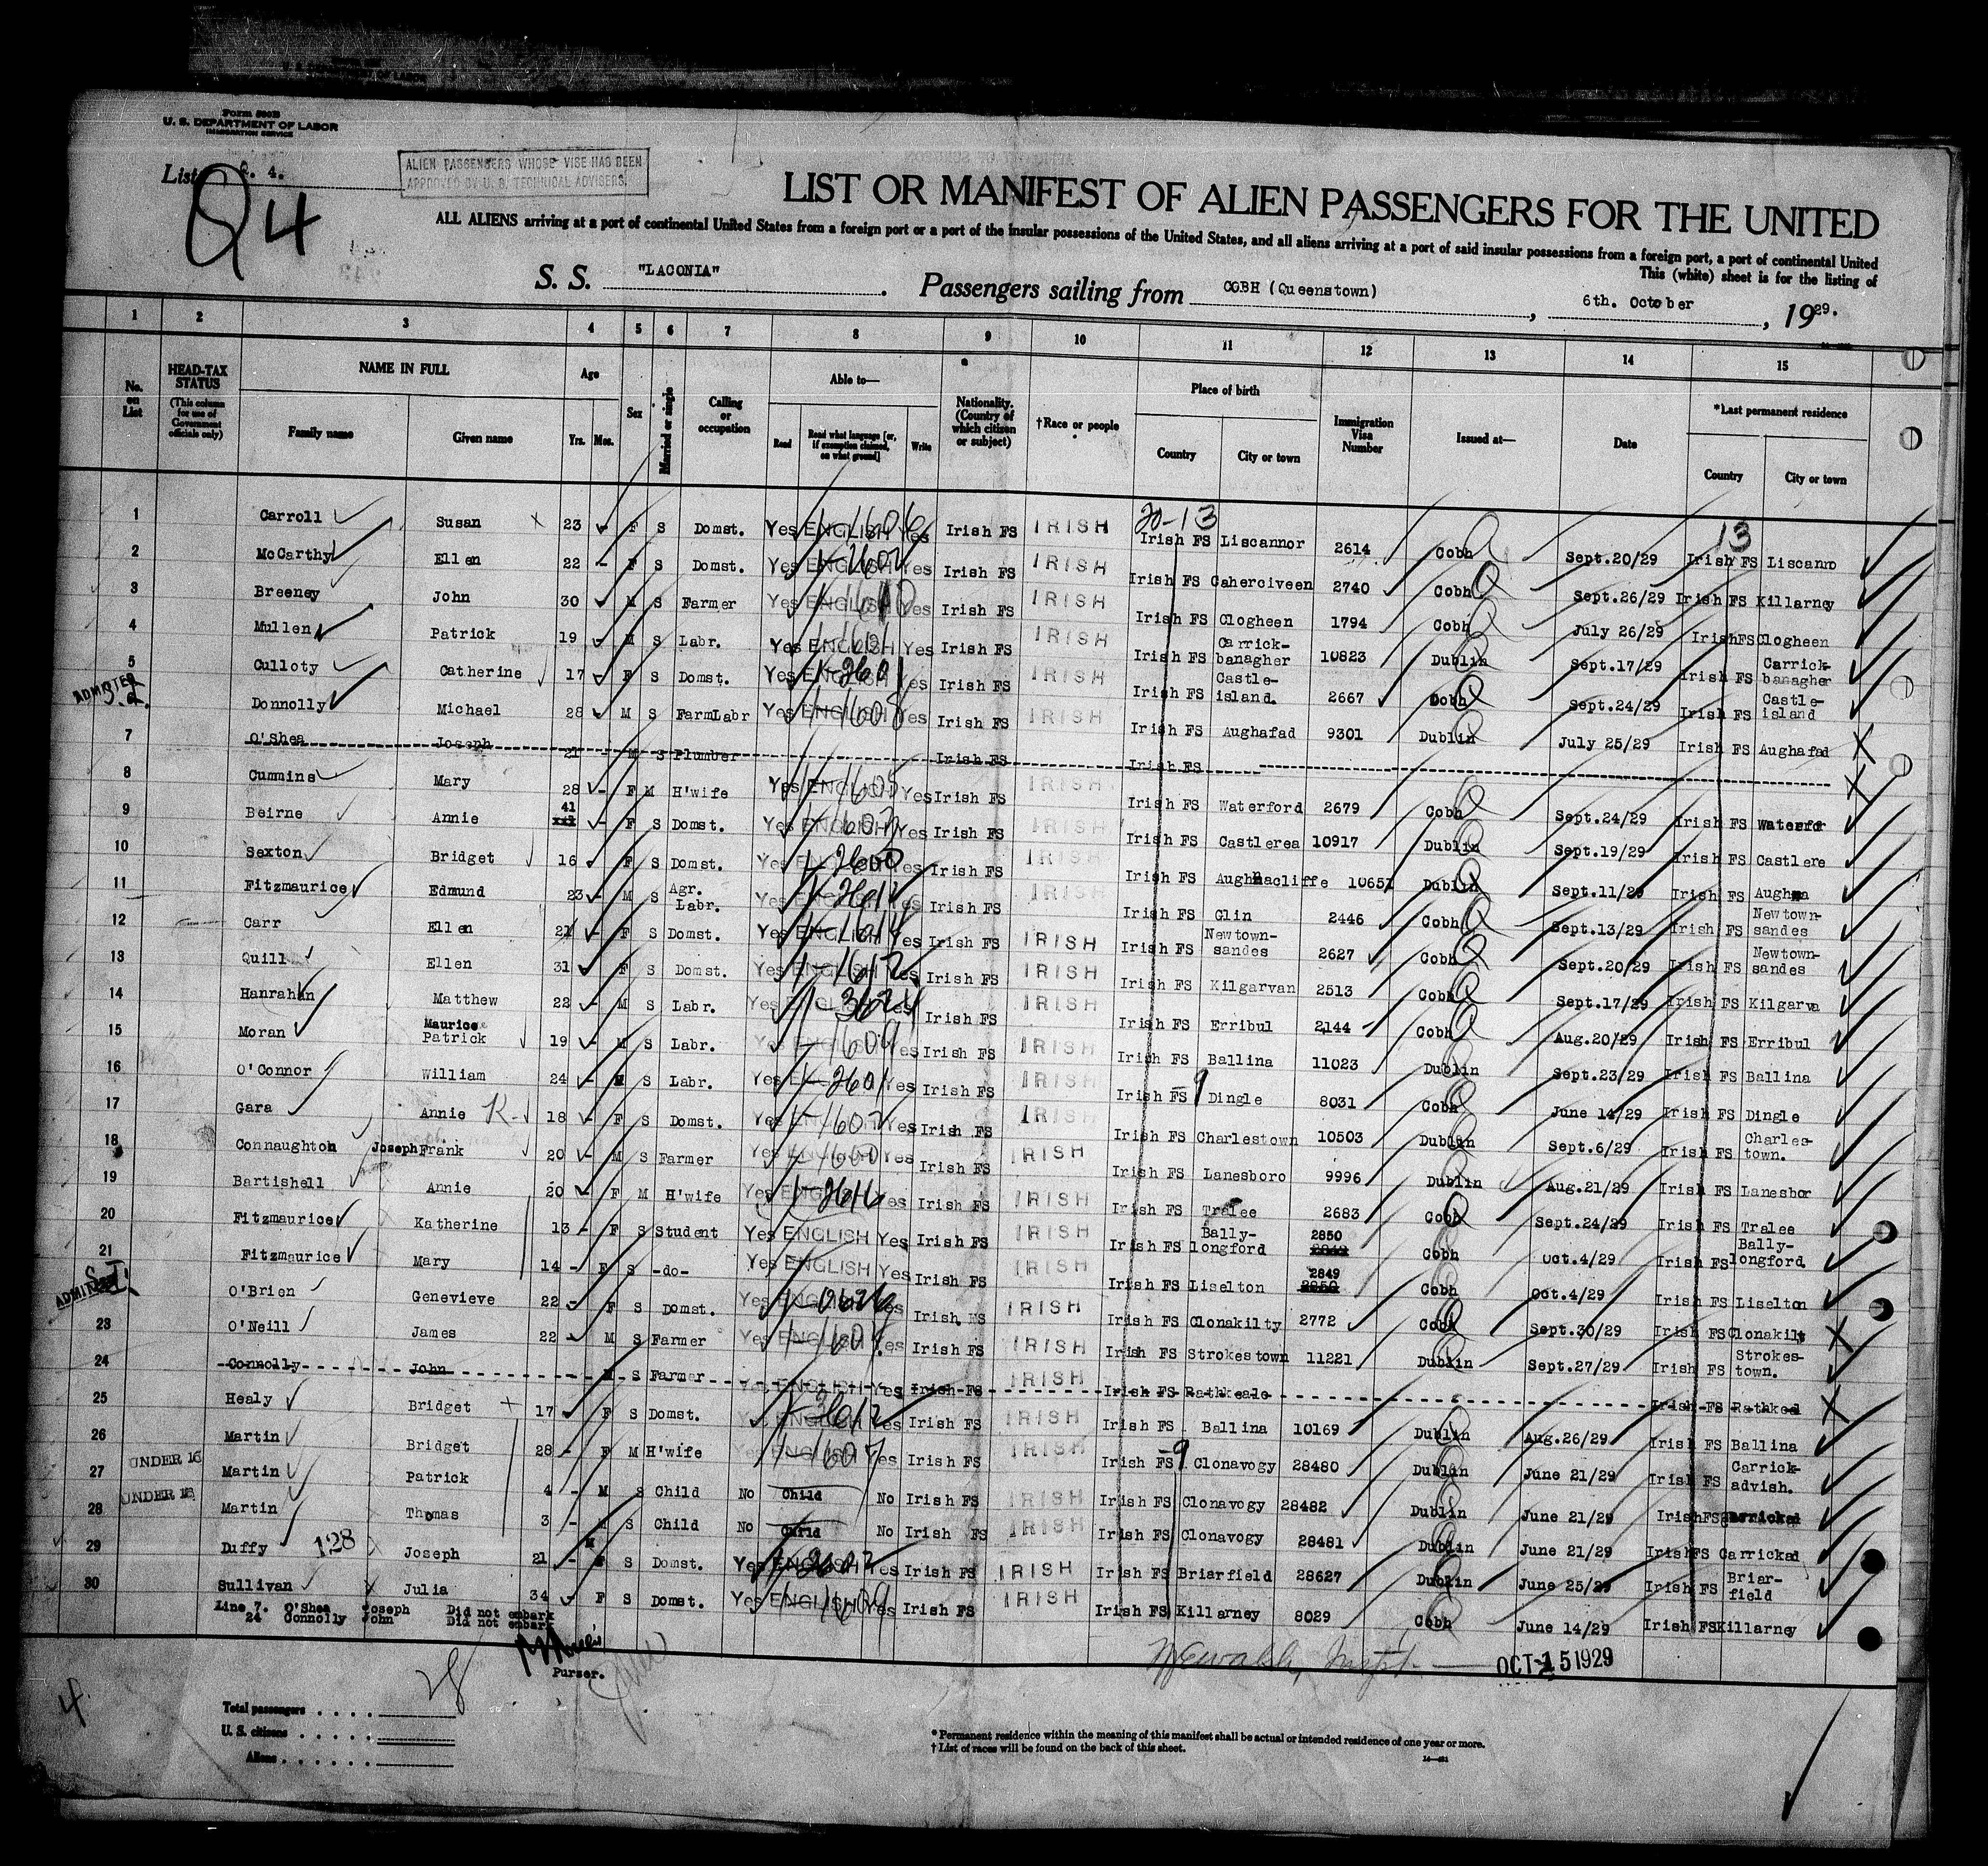 Form 500B
U. S. DEPARTMENT OF LABOR
IMMIGRATION SERVICE
List Q. 4.
Q4
ALIEN PASSENGERS WHOSE VISE HAS BEEN
APPROVED BY U. S. TECHNICAL ADVISERS.
LIST OR MANIFEST OF ALIEN PASSENGERS FOR THE UNITED
ALL ALIENS arriving at a port of continental United States from a foreign port or a port of the insular possessions of the United States, and all aliens arriving at a port of said insular possessions from a foreign port, a port of continental United
This (white) sheet is for the listing of
S. S. "LACONIA" Passengers sailing from COBH (Queenstown), 6th. October, 1929.
1 2 3 4 5 6 7 8 9 10 11 12 13 14 15
No. on List
HEAD-TAX STATUS
(This column for use of Government officials only)
NAME IN FULL
Family name Given name
Age
Yrs. Mos.
Sex
Married or single
Calling or occupation
Able to—
Read Read what language [or, if exemption claimed, on what ground] Write
Nationality. (Country of which citizen or subject)
†Race or people
Place of birth
Country City or town
Immigration Visa Number
Issued at—
Date
*Last permanent residence
Country City or town
20-13 13
1 Carroll Susan 23 - F S Domst. Yes ENGLISH Yes Irish FS IRISH Irish FS Liscannor 2614 Cobh Sept.20/29 Irish FS Liscanno
2 McCarthy Ellen 22 - F S Domst. Yes ENGLISH Yes Irish FS IRISH Irish FS Caherciveen 2740 Cobh Sept.26/29 Irish FS Killarney
3 Breeney John 30 M S Farmer Yes ENGLISH Yes Irish FS IRISH Irish FS Clogheen 1794 Cobh July 26/29 Irish FS Clogheen
4 Mullen Patrick 19 M S Labr. Yes ENGLISH Yes Irish FS IRISH Irish FS Carrick-banagher 10823 Dublin Sept.17/29 Irish FS Carrick-banagher
5 Culloty Catherine 17 F S Domst. Yes ENGLISH Yes Irish FS IRISH Irish FS Castle-island. 2667 Cobh Sept.24/29 Irish FS Castle-island
ADMITTED Donnolly Michael 28 M S FarmLabr Yes ENGLISH Yes Irish FS IRISH Irish FS Aughafad 9301 Dublin July 25/29 Irish FS Aughafad X
7 O'Shea Joseph 21 - M S Plumber Irish FS Irish FS X
8 Cummins Mary 28 - F M H'wife Yes ENGLISH Yes Irish FS IRISH Irish FS Waterford 2679 Cobh Sept.24/29 Irish FS Waterfor
9 Beirne Annie 41 - F S Domst. Yes ENGLISH Yes Irish FS IRISH Irish FS Castlerea 10917 Dublin Sept.19/29 Irish FS Castlere
10 Sexton Bridget 16 F S Domst. Yes ENGLISH Yes Irish FS IRISH Irish FS Aughnacliffe 10651 Dublin Sept.11/29 Irish FS Aughna
11 Fitzmaurice Edmund 23 - M S Agr. Labr. Yes ENGLISH Yes Irish FS IRISH Irish FS Glin 2446 Cobh Sept.13/29 Irish FS Newtown-sandes
12 Carr Ellen 21 - F S Domst. Yes ENGLISH Yes Irish FS IRISH Irish FS Newtown-sandes 2627 Cobh Sept.20/29 Irish FS Newtown-sandes
13 Quill Ellen 31 F S Domst. Yes ENGLISH Yes Irish FS IRISH Irish FS Kilgarvan 2513 Cobh Sept.17/29 Irish FS Kilgarva
14 Hanrahan Matthew 22 - M S Labr. Yes ENGLISH Yes Irish FS IRISH Irish FS Erribul 2144 Cobh Aug.20/29 Irish FS Erribul
15 Moran Maurice Patrick 19 - M S Labr. Yes ENGLISH Yes Irish FS IRISH Irish FS Ballina 11023 Dublin Sept.23/29 Irish FS Ballina
16 O'Connor William 24 - M S Labr. Yes ENGLISH Yes Irish FS IRISH Irish FS -9 Dingle 8031 Cobh June 14/29 Irish FS Dingle
17 Gara Annie K- 18 - F S Domst. Yes ENGLISH Yes Irish FS IRISH Irish FS Charlestown 10503 Dublin Sept.6/29 Irish FS Charles-town.
18 Connaughton Joseph Frank 20 - M S Farmer Yes ENGLISH Yes Irish FS IRISH Irish FS Lanesboro 9996 Dublin Aug.21/29 Irish FS Lanesbor
19 Bartishell Annie 20 - F M H'wife Yes ENGLISH Yes Irish FS IRISH Irish FS Tralee 2683 Cobh Sept.24/29 Irish FS Tralee
20 Fitzmaurice Katherine 13 - F S Student Yes ENGLISH Yes Irish FS IRISH Irish FS Bally-longford 2850 Cobh Oct.4/29 Irish FS Bally-longford
21 Fitzmaurice Mary 14 - F S -do- Yes ENGLISH Yes Irish FS IRISH Irish FS Liselton 2849 2850 Cobh Oct.4/29 Irish FS Liselton
ADMITTED S.I. O'Brien Genevieve 22 - F S Domst. Yes ENGLISH Yes Irish FS IRISH Irish FS Clonakilty 2772 Cobh Sept.30/29 Irish FS Clonakilt X
23 O'Neill James 22 - M S Farmer Yes ENGLISH Yes Irish FS IRISH Irish FS Strokestown 11221 Dublin Sept.27/29 Irish FS Strokes-town.
24 Connolly John - M S Farmer Yes ENGLISH Yes Irish FS IRISH Irish FS Rathkeale Irish FS Rathkeal X
25 Healy Bridget 17 F S Domst. Yes ENGLISH Yes Irish FS IRISH Irish FS Ballina 10169 Dublin Aug.26/29 Irish FS Ballina
26 Martin Bridget 28 - F M H'wife Yes ENGLISH Yes Irish FS IRISH Irish FS -9 Clonavogy 28480 Dublin June 21/29 Irish FS Carrick-advish.
27 UNDER 16 Martin Patrick 4 - M S Child No Child No Irish FS IRISH Irish FS Clonavogy 28482 Dublin June 21/29 Irish FS Carrickad
28 UNDER 16 Martin Thomas 3 - M S Child No Child No Irish FS IRISH Irish FS Clonavogy 28481 Dublin June 21/29 Irish FS Carrickad
29 Duffy 128 Joseph 21 - M S Domst. Yes ENGLISH Yes Irish FS IRISH Irish FS Briarfield 28627 Dublin June 25/29 Irish FS Briar-field
30 Sullivan Julia 34 F S Domst. Yes ENGLISH Yes Irish FS IRISH Irish FS Killarney 8029 Cobh June 14/29 Irish FS Killarney
Line 7. O'Shea Joseph Did not embark
24 Connolly John Did not embark
Purser.
OCT 15 1929
28
Total passengers
U. S. citizens
Aliens
* Permanent residence within the meaning of this manifest shall be actual or intended residence of one year or more.
† List of races will be found on the back of this sheet.